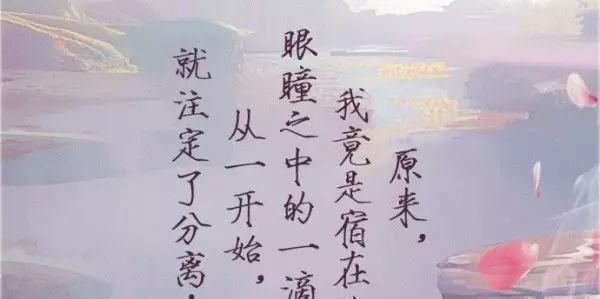 原来，
我竟是宿在
眼瞳之中的一滴
从一开始，
就注定了分离，